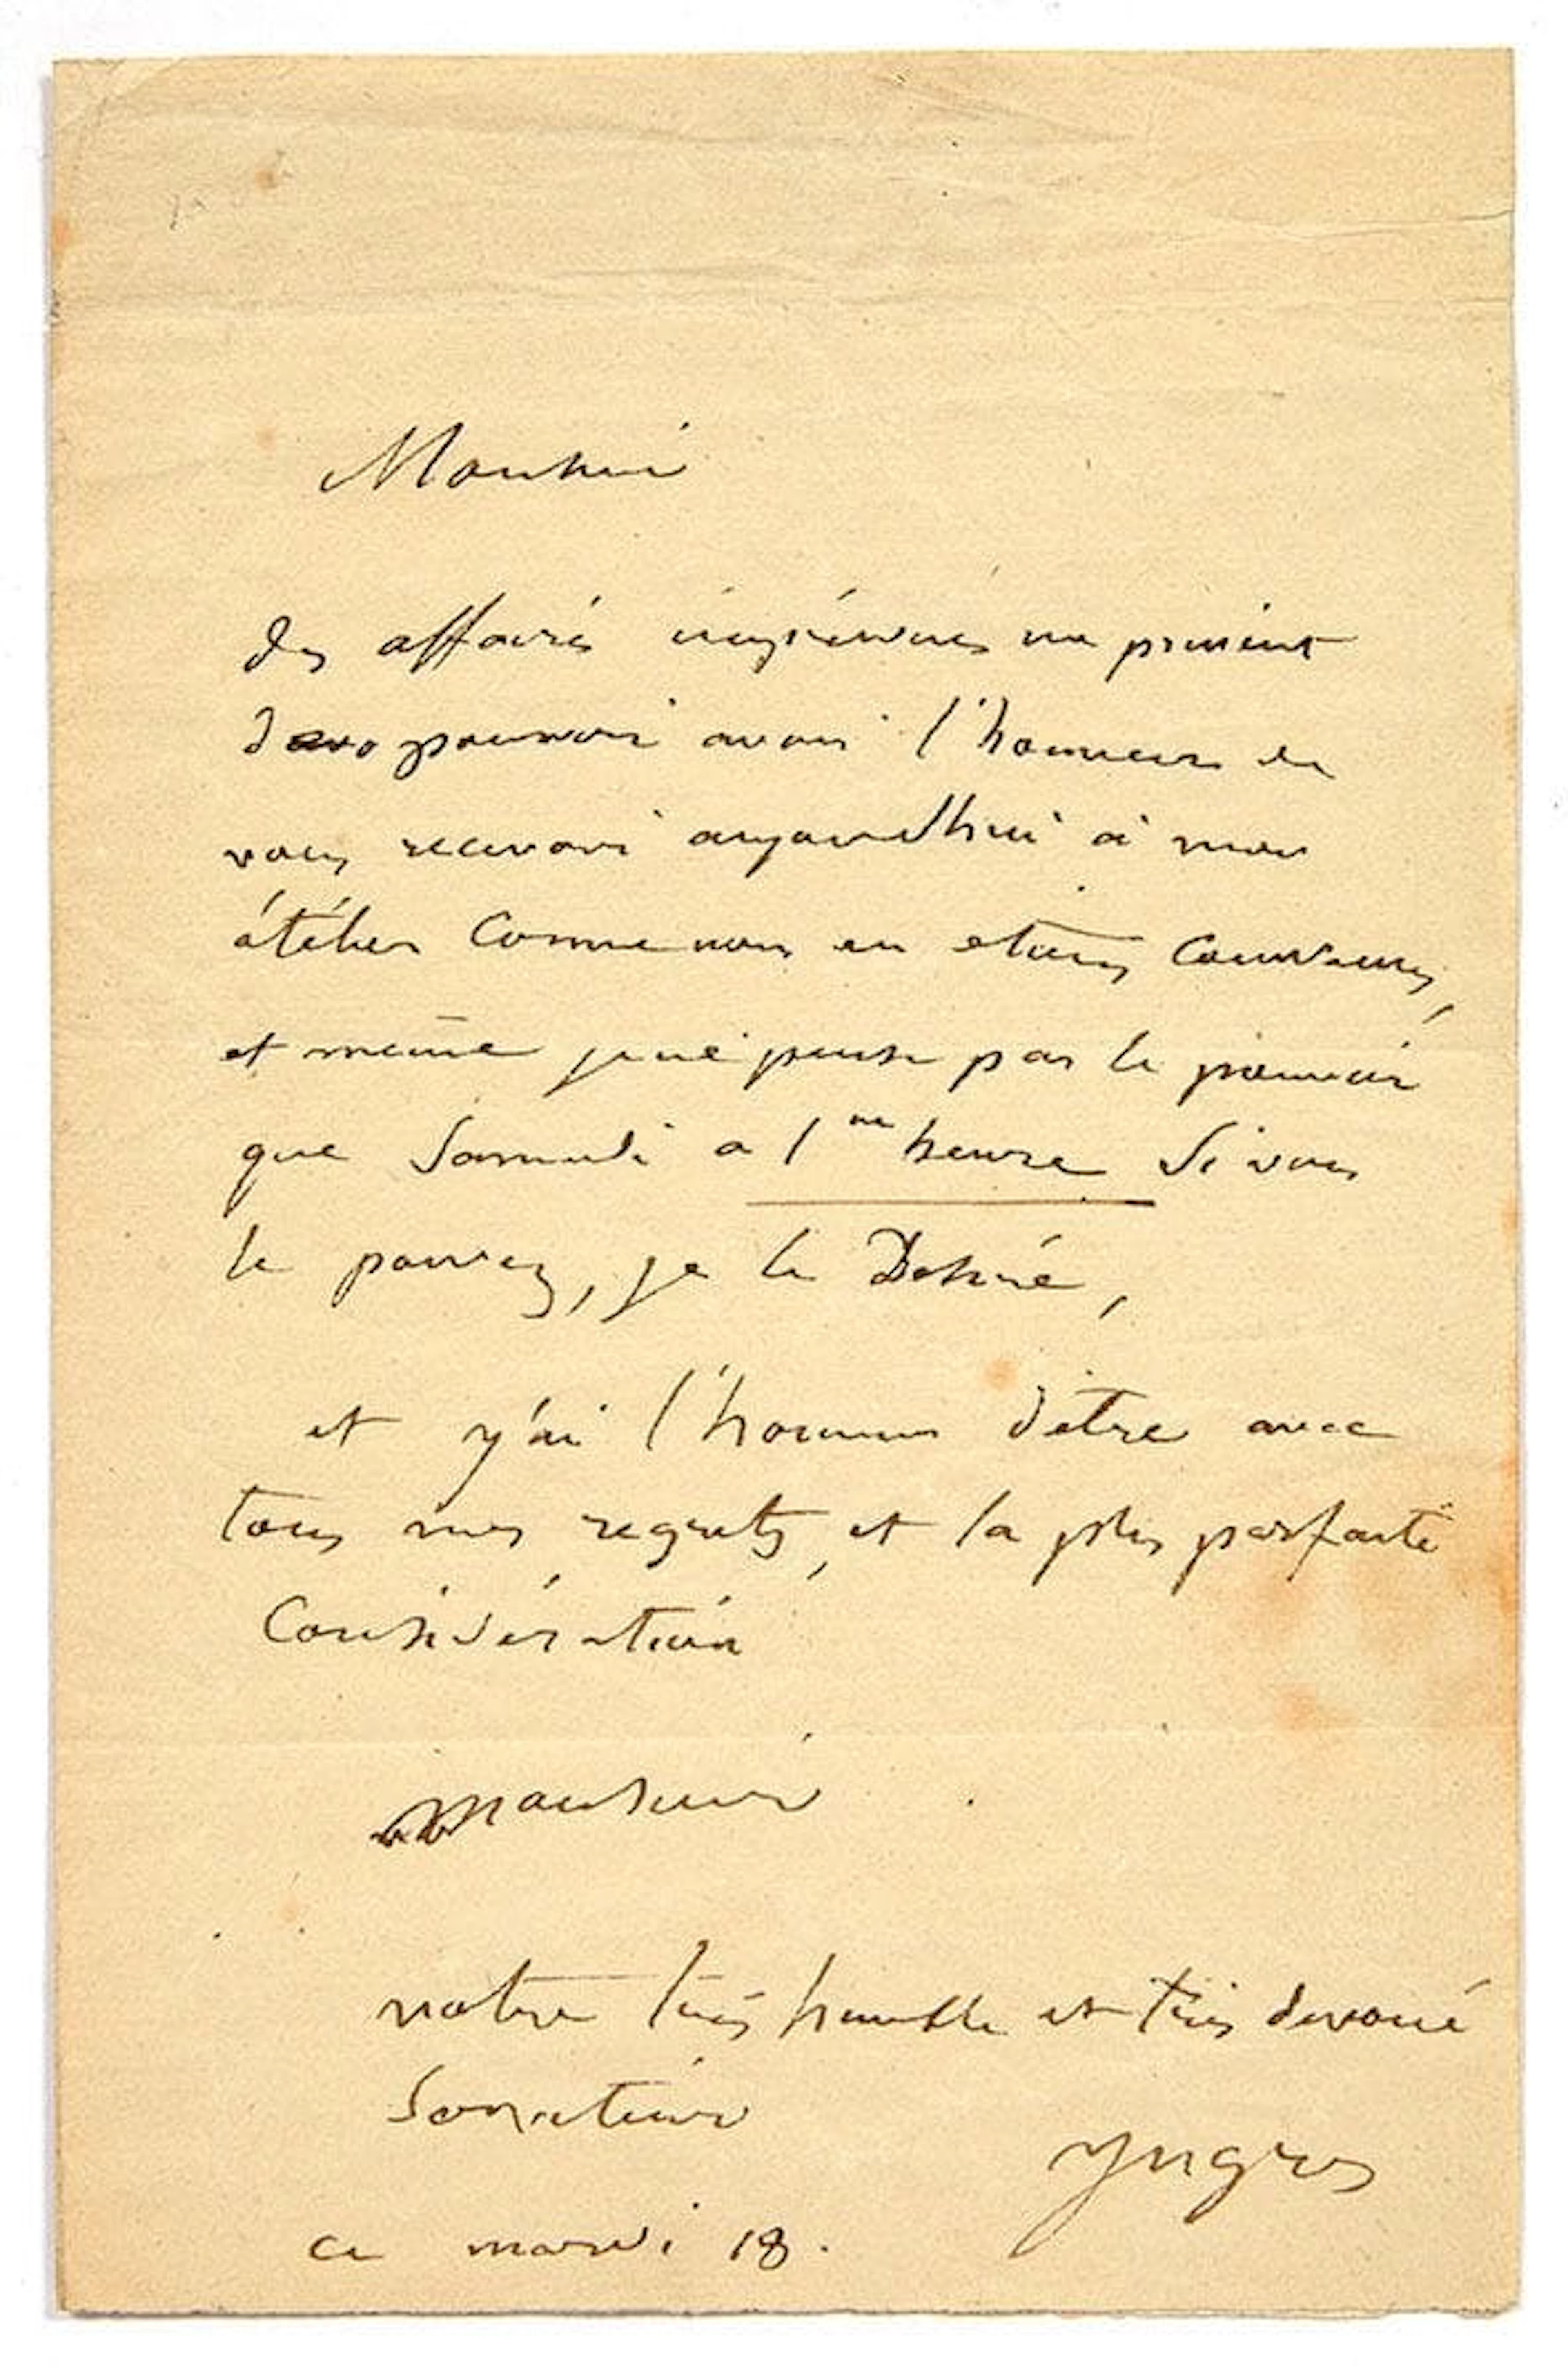 Monsieur
des affaires imprévues me privent
de pouvoir avoir l'honneur de
vous recevoir aujourdhui à mon
átélier comme nous en etions convenus,
et même je ne puisse pas le pouvoir
que Samedi a 1 ne heure Si vous
le pouvez, je le Désire,
et j'ai l'honneur d'être avec
tous mes regrets, et la plus parfaite
Considération
Monsieur
votre très humble et très devoué
Serviteur
Yngres
ce mardi 18.